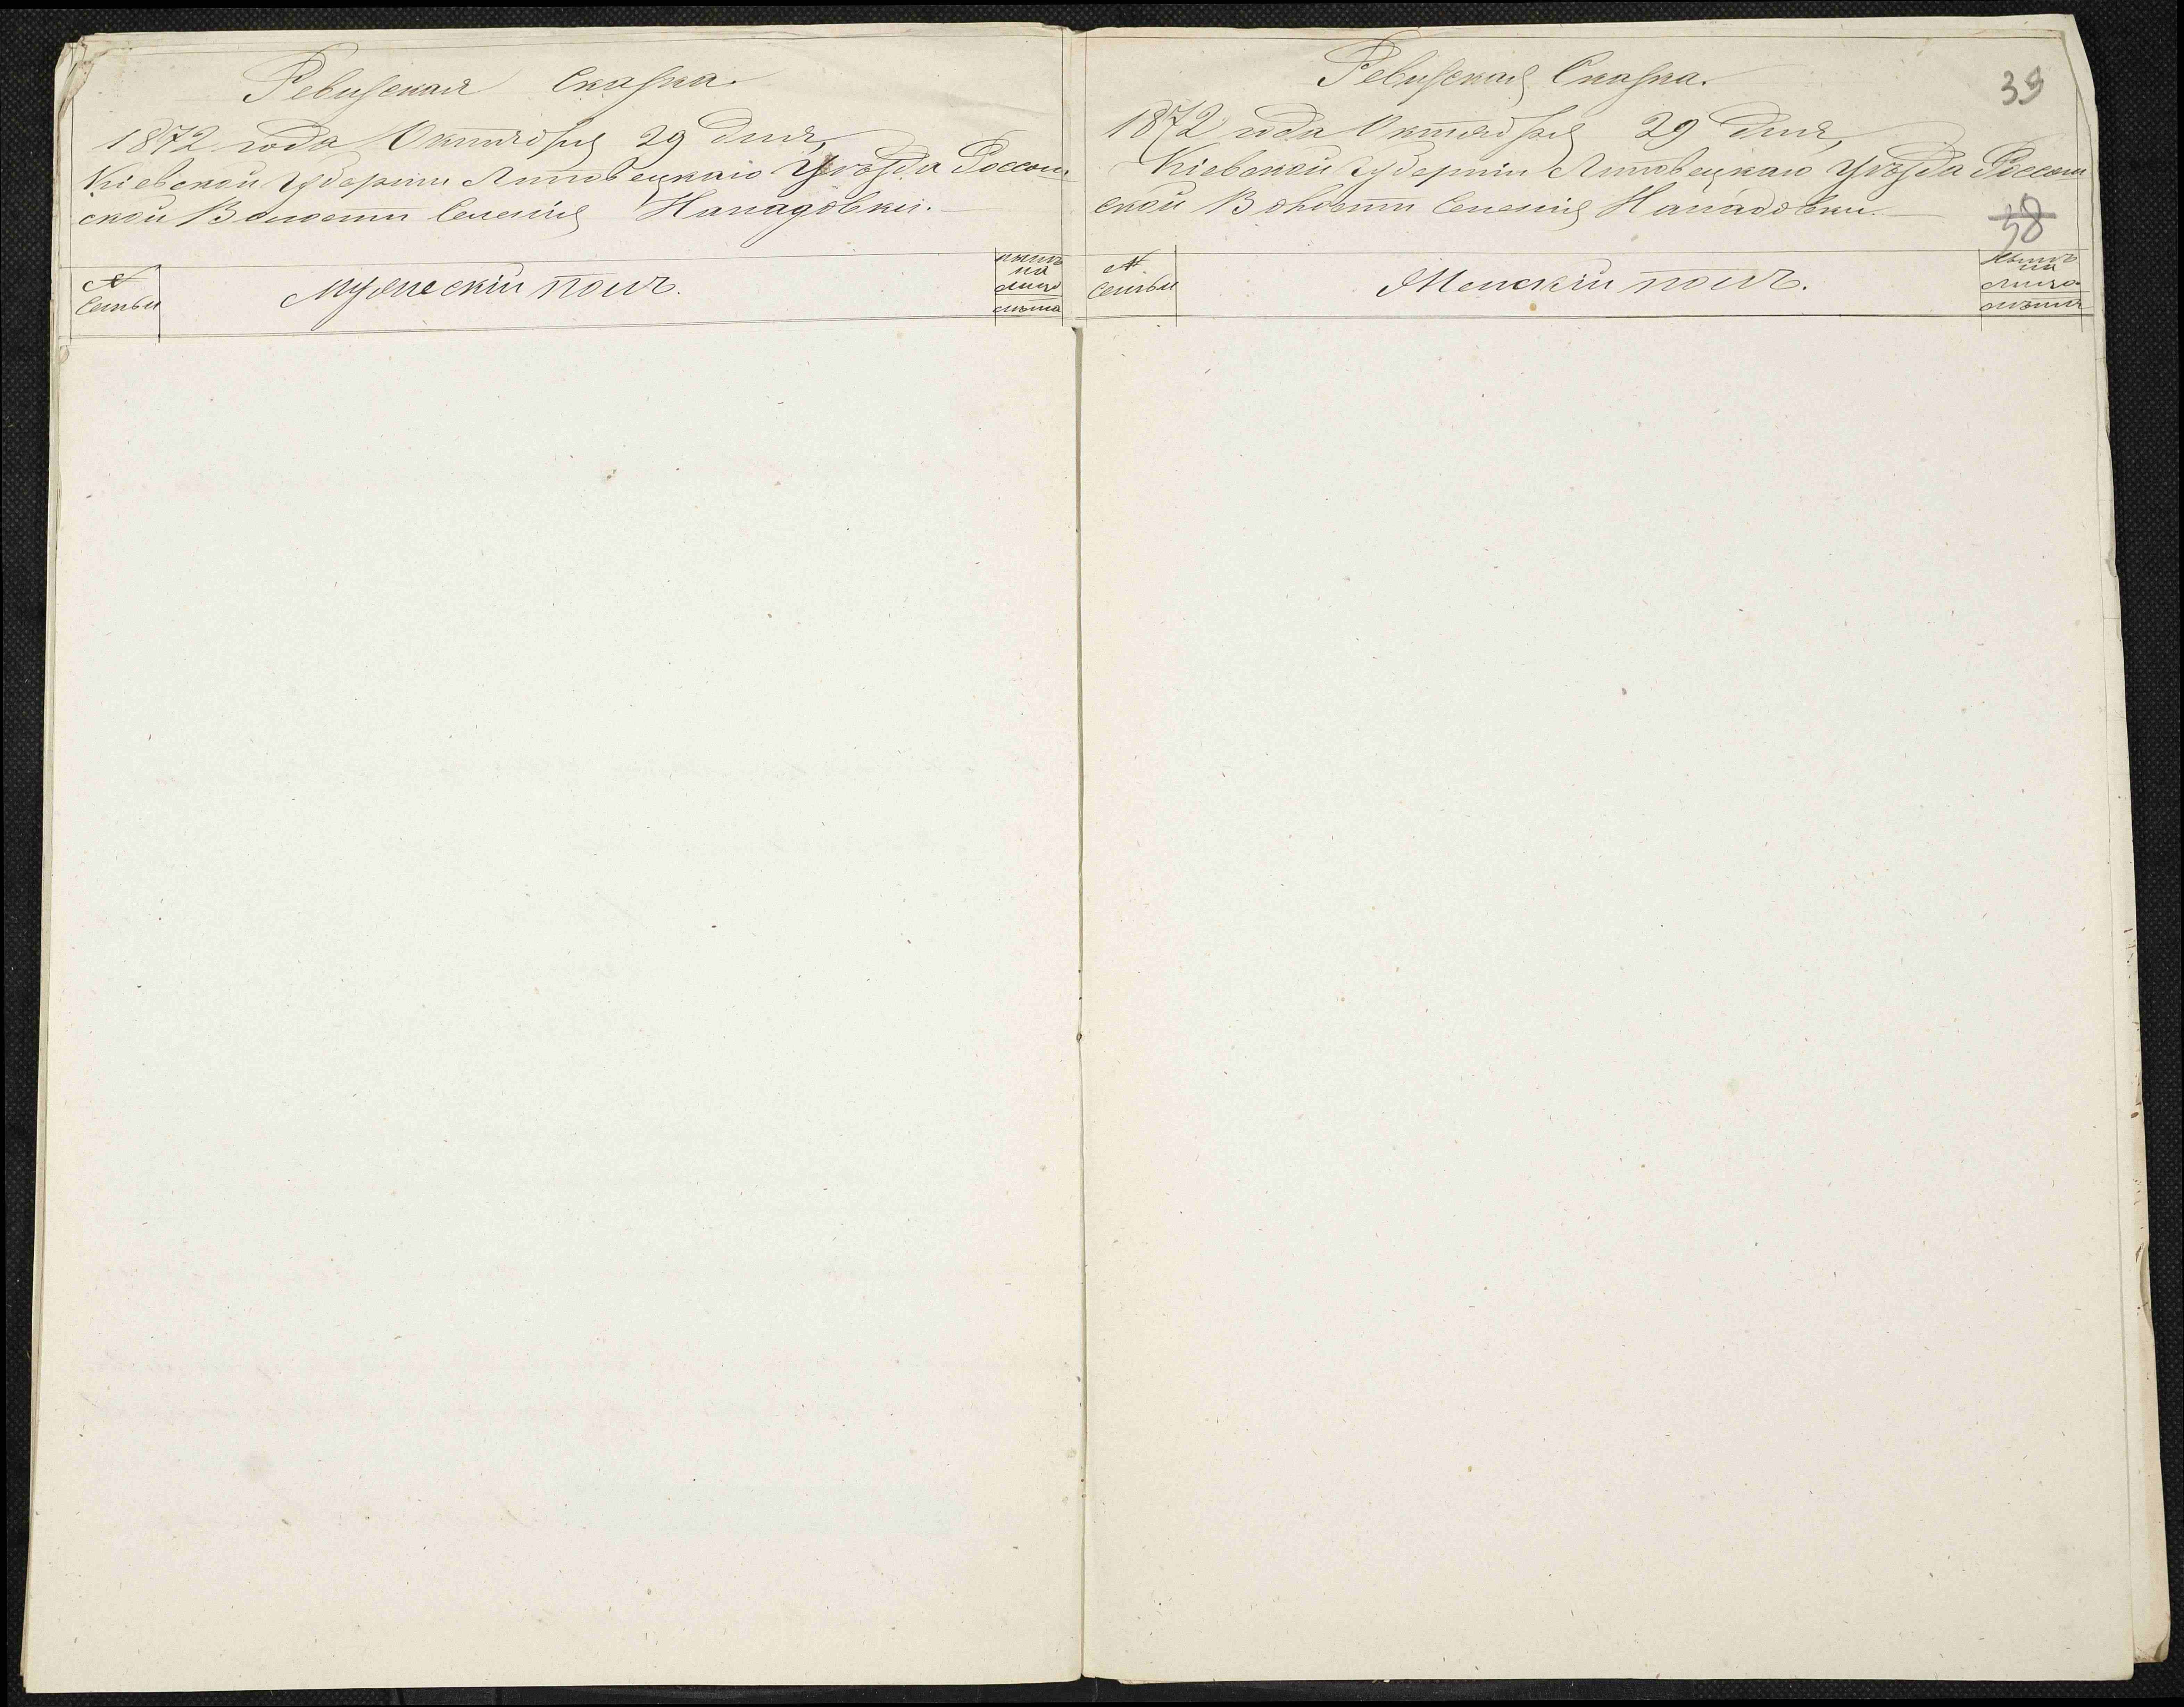 Ревизская Сказка.
1872 года Октября 29 дня,
Кіевской Губерніи Липовецкаго Уѣзда Россош
ской Волости Селенія Нападовки.
№ Семьи
Мужескій полъ.
нынѣ на лицо
лѣта
Ревизская Сказка.
39
1872 года Октября 29 дня,
Кіевской Губерніи Липовецкаго Уѣзда Россош
ской Волости Селенія Нападовки.
38
№ Семьи
Женскій полъ.
Нынѣ на лицо
лѣта